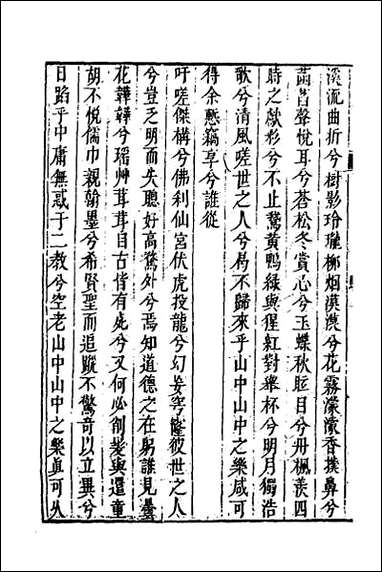 溪流曲折兮樹影玲瓏柳烟漠漠兮花霧濛濛香撲鼻兮
菌萏聲悅耳兮蒼松冬賞心兮玉蝶秋眩目兮丹楓羨四
時之獻彩兮不止鶩黃鴨綠與猩紅對擧杯兮明月獨浩
歌兮清風嗟世之人兮曷不歸來乎山中山中之樂咸可
得余慙竊享兮誰從
吁嗟傑構兮佛利仙宮伏虎投龍兮幻妄穹窿彼世之人
兮豈乏明而失聰好高騖外兮焉知道德之在躬誰見曇
花韡韡兮瑶艸茸茸自古皆有死兮又何必削髮與還童
胡不悅儒巾親翰墨兮希賢聖而追蹤不驚奇以立異兮
日蹈乎中庸無惑于二教兮空老山中山中之樂眞可从